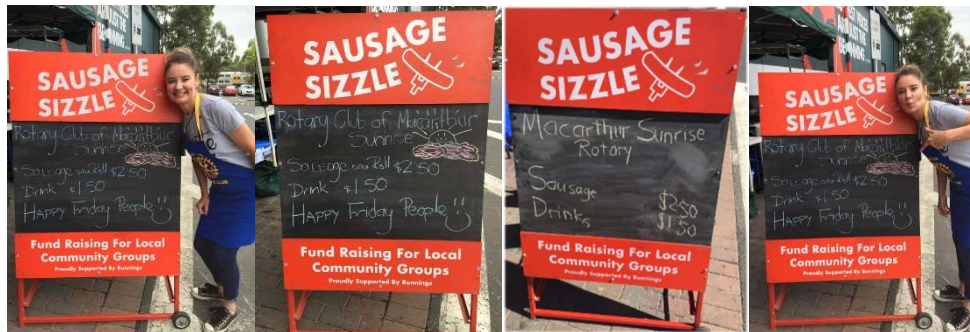 SAUSAGE
SIZZLE
Rotary Club of Macarthur
Sunrise
Sausage and Roll $2.50
Drink $1.50
Happy Friday People
Fund Raising For Local
Community Groups
Proudly Supported By Bunnings
SAUSAGE
SIZZLE
Rotary Club of Macarthur
Sunrise
Sausage and Roll $2.50
Drink $1.50
Happy Friday People
Fund Raising For Local
Community Groups
Proudly Supported By Bunnings
SAUSAGE
SIZZLE
Macarthur Sunrise
Rotary
Sausage $2.50
Drinks $1.50
Fund Raising For Local
Community Groups
Proudly Supported By Bunnings
SAUSAGE
SIZZLE
Rotary Club of Macarthur
Sunrise
Sausage and Roll $2.50
Drink $1.50
Happy Friday People
Fund Raising For Local
Community Groups
Proudly Supported By Bunnings